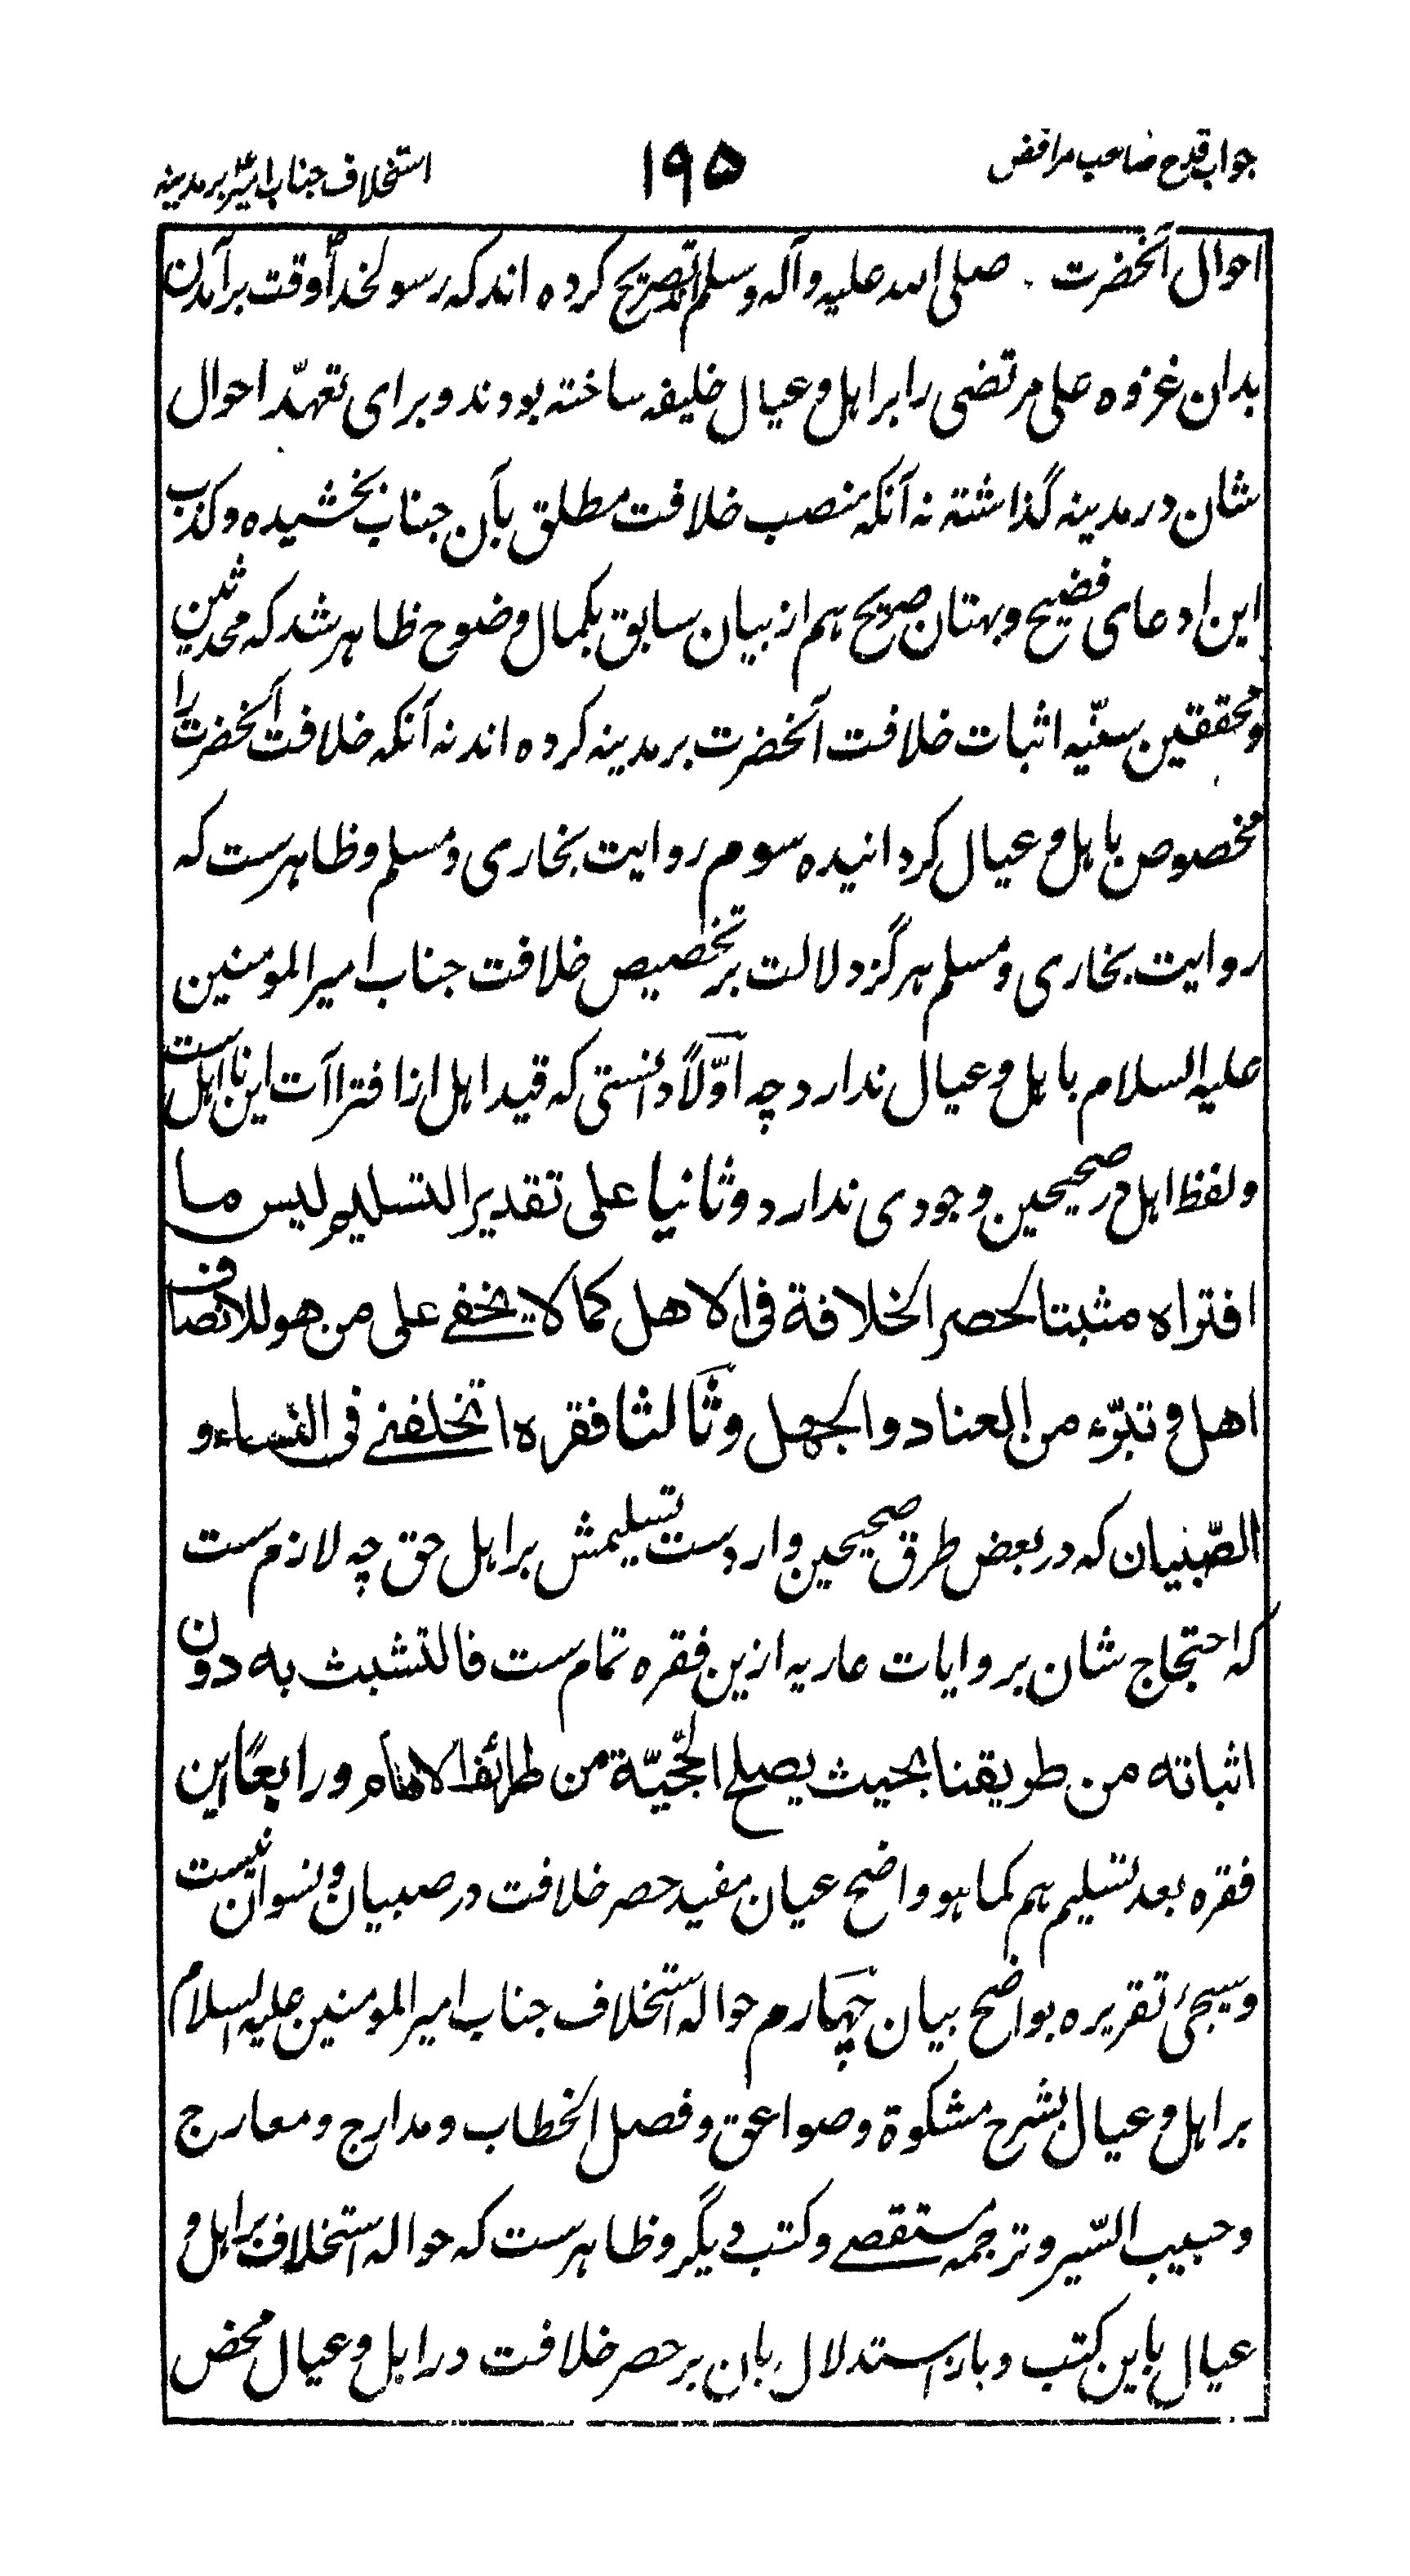 جواب قدح صاحب مرافض
۱۹۵
استخلاف جناب امیرؑ بر مدینه
احوال آنخضرت صلی الله علیه و آله وسلم اند تصریح کرده اند که رسولخداؐ وقت برآمدن
بدان غزوه علی مرتضی را بر اهل و عیال خلیفه ساخته بودند و برای تعهّد احوال
شان در مدینه گذاشته نه آنکه منصب خلافت مطلق بآن جناب بخشیده و کذب
این ادعای فضیح و بهتان صریح هم از بیان سابق بکمال وضوح ظاهر شد که محدثین
و محققین سنّیه اثبات خلافت آنخضرت بر مدینه کرده اند نه آنکه خلافت آنخضرت را
مخصوص باهل و عیال کردانیده سوم روایت بخاری و مسلم و ظاهرست که
روایت بخاری و مسلم هرگز دلالت بر تخصیص خلافت جناب امیرالمومنین
علیه السلام باهل و عیال ندارد چه اوّلاً دانستی که قید اهل از افتراآت این نا اهل ست
و لفظ اهل در صحیحین وجودی ندارد و ثانیا علی تقدیر التسلیم لیس ما
افتراه مثبتا لحصر الخلافة فی الاهل کما لا یخفے علی من هو للانصاف
اهل و تبرّء من العناد و الجهل و ثالثا فقره اتخلفنے فی النساء و
الصّبیان که در بعض طرق صحیحین واردست تسلیمش بر اهل حق چه لازم ست
که احتجاج شان بروایات عاریه ازین فقره تمام ست فالتشبث به دون
اثباته من طریقنا بحیث یصلح الحجّیّة من طرائف الاوهام و رابعًا این
فقره بعد تسلیم هم کما هو واضح عیان مفید حصر خلافت در صبیان و نسوان نیست
و سیجئ تقریره بواضح بیان چهارم حواله استخلاف جناب امیرالمومنین علیه السلام
بر اهل و عیال بشرح مشکوة و صواعق و فصل الخطاب و مدارج و معارج
و حبیب السّیر و ترجمه مستقصے و کتب دیگر و ظاهرست که حواله استخلاف بر اهل و
عیال باین کتب و باز استدلال بان بر حصر خلافت در اهل و عیال محض